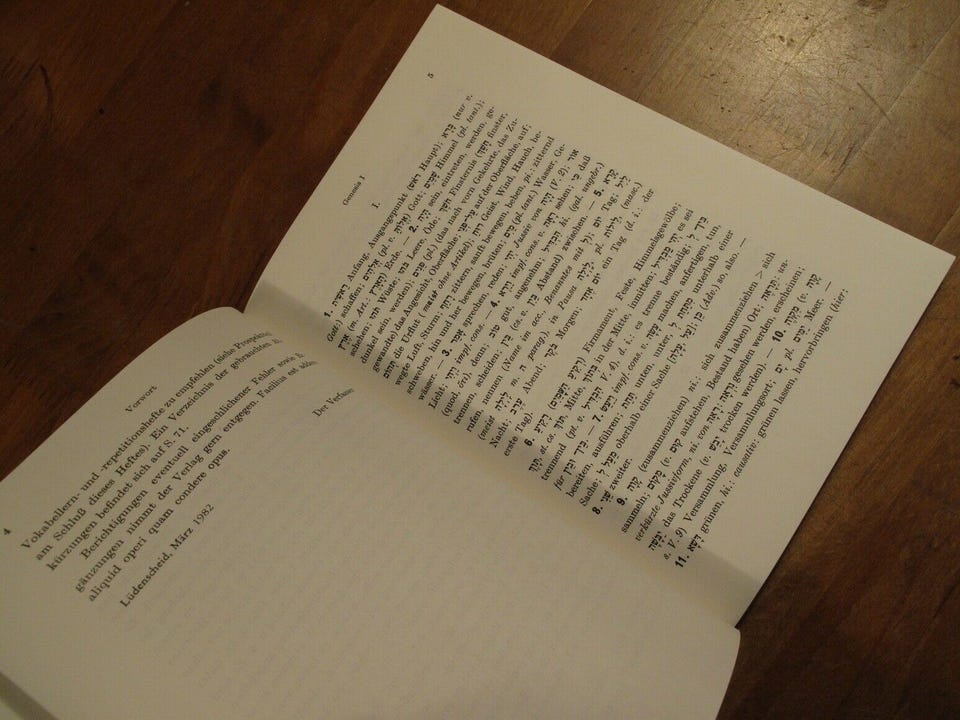 4
Vorwort
Vokabellern- und -repetitionshefte zu empfehlen (siehe
am Schluß dieses Heftes). Ein Verzeichnis der gebrauchten
kürzungen befindet sich auf S. 71.
Berichtigungen eventuell eingeschlichener Fehler sowie
gänzungen nimmt der Verlag gern entgegen. Facilius est
aliquid operi quam condere opus.
Lüdenscheid, März 1982
Der Verfasse
Genesis I
5
I.
1. רֵאשִׁית Anfang, Ausgangspunkt (רֹאשׁ Haupt); בָּרָא (nur v.
Gott) schaffen; אֱלֹהִים (pl. v. אֱלוֹהַּ) Gott; שָׁמַיִם Himmel (pl. tant.);
אֶרֶץ (m. Art.: הָאָרֶץ) Erde. — 2. הָיָה sein, eintreten, werden, ge-
schehen; תֹּהוּ Wüste; בֹּהוּ Leere, Öde; חֹשֶׁךְ Finsternis (חָשַׁךְ finster,
dunkel sein, werden); פָּנִים (pl.) (das nach vorn Gekehrte, das Zu-
gewandte) das Angesicht, Oberfläche; עַל־פְּנֵי auf der Oberfläche, auf;
תְּהוֹם die Urflut (meist ohne Artikel); רוּחַ Geist, Wind, Hauch, be-
wegte Luft, Sturm; רָחַף zittern, sanft bewegen, beben, pi.: zitternd
schweben, hin und her bewegen, brüten; מַיִם (pl. tant.) Wasser, Ge-
wässer. — 3. אָמַר sprechen, reden; יְהִי Jussiv von הָיָה (V. 2); אוֹר
Licht; וַיְהִי impf. cons. — 4. וַיַּרְא impf. cons. v. רָאָה sehen; כִּי daß
(quod, ὅτι), denn; טוֹב gut, angenehm; הִבְדִּיל hi. (qal ungebr.)
trennen, scheiden; בֵּין (cs. v. בַּיִן Abstand) zwischen. — 5. קָרָא
rufen, nennen (Name im acc., Benanntes mit לְ); יוֹם Tag; לַיִל
(meist לַיְלָה m. ה parag.), in Pausa לָיְלָה pl. לֵילוֹת (masc.)
Nacht; עֶרֶב Abend; בֹּקֶר Morgen; יוֹם אֶחָד ein Tag (d. i.: der
erste Tag)
6. רָקִיעַ (רְקִיעַ הַשָּׁמַיִם) Firmament, Feste, Himmelsgewölbe;
תָּוֶךְ, st. cs. תּוֹךְ, Mitte, בְּתוֹךְ in der Mitte, inmitten; יְהִי מַבְדִּיל es sei
trennend (pt. v. הִבְדִּיל V. 4), d. i.: es trenne beständig; בֵּין לְ
für בֵּין וּבֵין. — 7. וַיַּעַשׂ impf. cons. v. עָשָׂה machen, anfertigen, tun,
bereiten, ausführen; תַּחַת unten, unter, מִתַּחַת לְ unterhalb einer
Sache; מֵעַל לְ oberhalb einer Sache (עַל); כֵּן (Adv.) so, also. —
8. שֵׁנִי zweiter.
9. קָוָה (zusammenziehen) ni.: sich zusammenziehen > sich
sammeln; מָקוֹם (v. קוּם aufstehen, Bestand haben) Ort;
verkürzte Jussivform, ni. von רָאָה gesehen werden, erscheinen;
יַבָּשָׁה das Trockene (v. יָבֵשׁ trocken werden). — 10. מִקְוֶה (v. קָוָה
s. V. 9) Versammlung, Versammlungsort; יָם pl. יַמִּים Meer. —
11. דָּשָׁא grünen, hi.: causativ: grünen lassen, hervorbringen (hier: